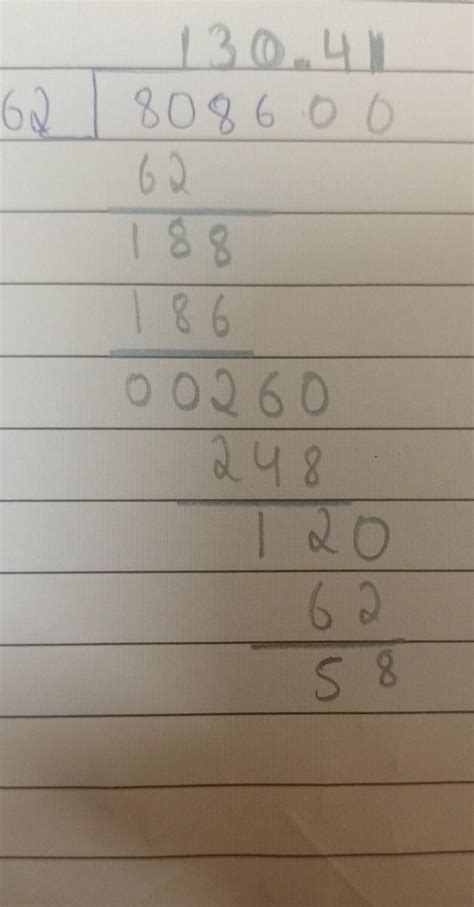 130.41
62 8086.00
62
188
186
00260
248
120
62
58